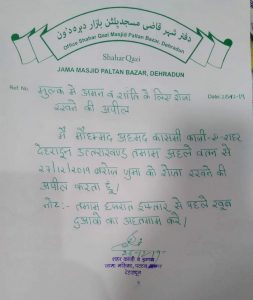 دفتر شہر قاضی مسجد پلٹن بازار دہرہ دون
Office Shahar Qazi Masjid Paltan Bazar, Dehradun
Shahar Qazi
JAMA MASJID PALTAN BAZAR, DEHRADUN
Ref. No.
Date
मुल्क में अमन व शांति के लिए रोजा
रखने की अपील
मैं मौहम्मद अहमद कासमी काजी-ए-शहर
देहरादून उत्तराखण्ड तमाम अहले वतन से
27/12/2019 बरोज जुमा को रोजा रखने की
अपील करता हूं।
नोट:- तमाम हजरात इफ्तार से पहले खूब
दुआओं का अहतमाम करें।
शहर काजी व इमाम
जामा मस्जिद, पलटन बाजार
देहरादून